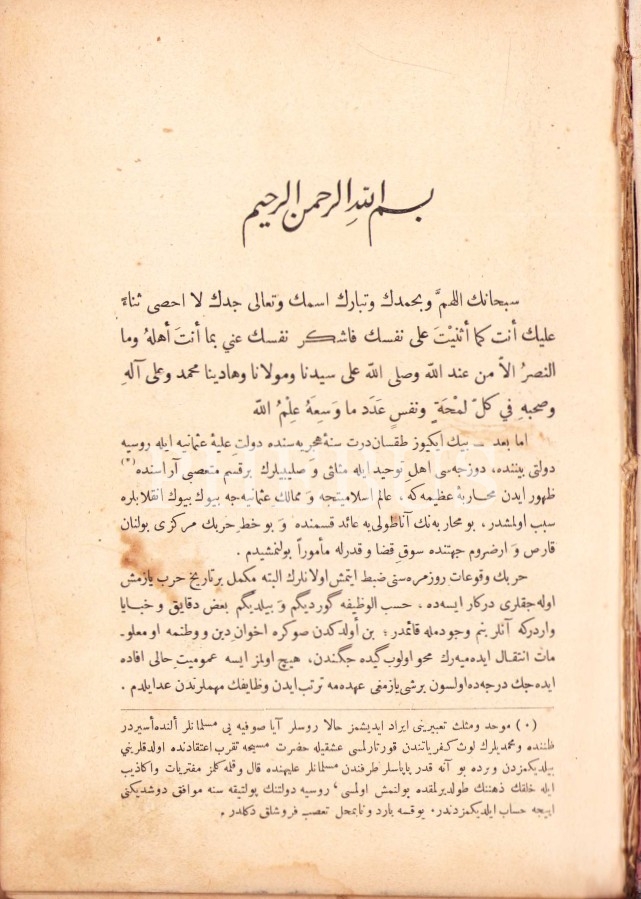 بسم الله الرحمن الرحيم
سبحانك اللهمَّ وبحمدك وتبارك اسمك وتعالى جدك لا احصى ثناءً
عليك أنت كما أثنيْتَ على نفسك فاشكر نفسك عني بما أنتَ أهلهُ وما
النصرُ الاَّ من عند الله وصلى الله على سيدنا ومولانا وهادينا محمد وعلى آلهِ
وصحبهِ في كلّ لمْحَةٍ ونفسٍ عَدَد ما وَسِعَهُ عِلْمُ الله
اما بعد ــ بيك ايكيوز طقسان درت سنهٔ هجريه‌سنده دولتِ عليهٔ عثمانيه ايله روسيه
دولتى بيننده، دوزجه‌سى اهلِ توحيد ايله مثلثى وَ صليبيلرك برقسم متعصبى آراسنده (*)
ظهور ايدن محاربهٔ عظيمه كه، عالم اسلاميتجه وَ ممالك عثمانيه‌جه بيوك بيوك انقلابلره
سبب اولمشدر، بو محاربه‌نك آناطولى‌يه عائد قسمنده وَ بو خط حربك مركزى بولنان
قارص وَ ارضروم جهتنده سوقِ قضا و قدرله مأموراً بولنمشيدم .
حربك وقوعات روزمره‌سنى ضبط ايتمش اولانلرك البته مكمل برتاريخ حرب يازمش
اوله جقلرى دركار ايسه‌ده ، حسب الوظيفه گورديگم وَ بيلديگم بعض دقايق و خبايا
واردركه آنلر بنم وجودمله قائمدر ؛ بن أولدكدن صوكره اخوان دين و وطنمه او معلو-
مات انتقال ايده‌ميه‌رك محو اولوب گيده جگندن، هيچ اولمز ايسه عموميت حالى افاده
ايده‌جك درجه‌ده اولسون برشى يازمغى عهده‌مه ترتب ايدن وظايفك مهملرندن عد ايلدم .
(٠) موحد ومثلث تعبيرينى ايراد ايديشمز حالا روسلر آيا صوفيه يى مسلمانلر ألنده أسيردر
ظننده ومحمديلرك لوث كفرياتندن قورتارلمسى عشقيله حضرت مسيحه تقرب اعتقادنده اولدقلرينى
بيلديكمزدن وبرده بو آنه قدر پاپاسلر طرفندن مسلمانلر عليهنده قال وقلمه كلمز مفتريات واكاذيب
ايله خلقك ذهننك طولديرلمقده بولنمش اولمسى ، روسيه دولتنك پولتيقه سنه موافق دوشديكنى
ايپجه حساب ايلديكمزدندر . يوقسه بارد ونابمحل تعصب فروشلق دكلدر .